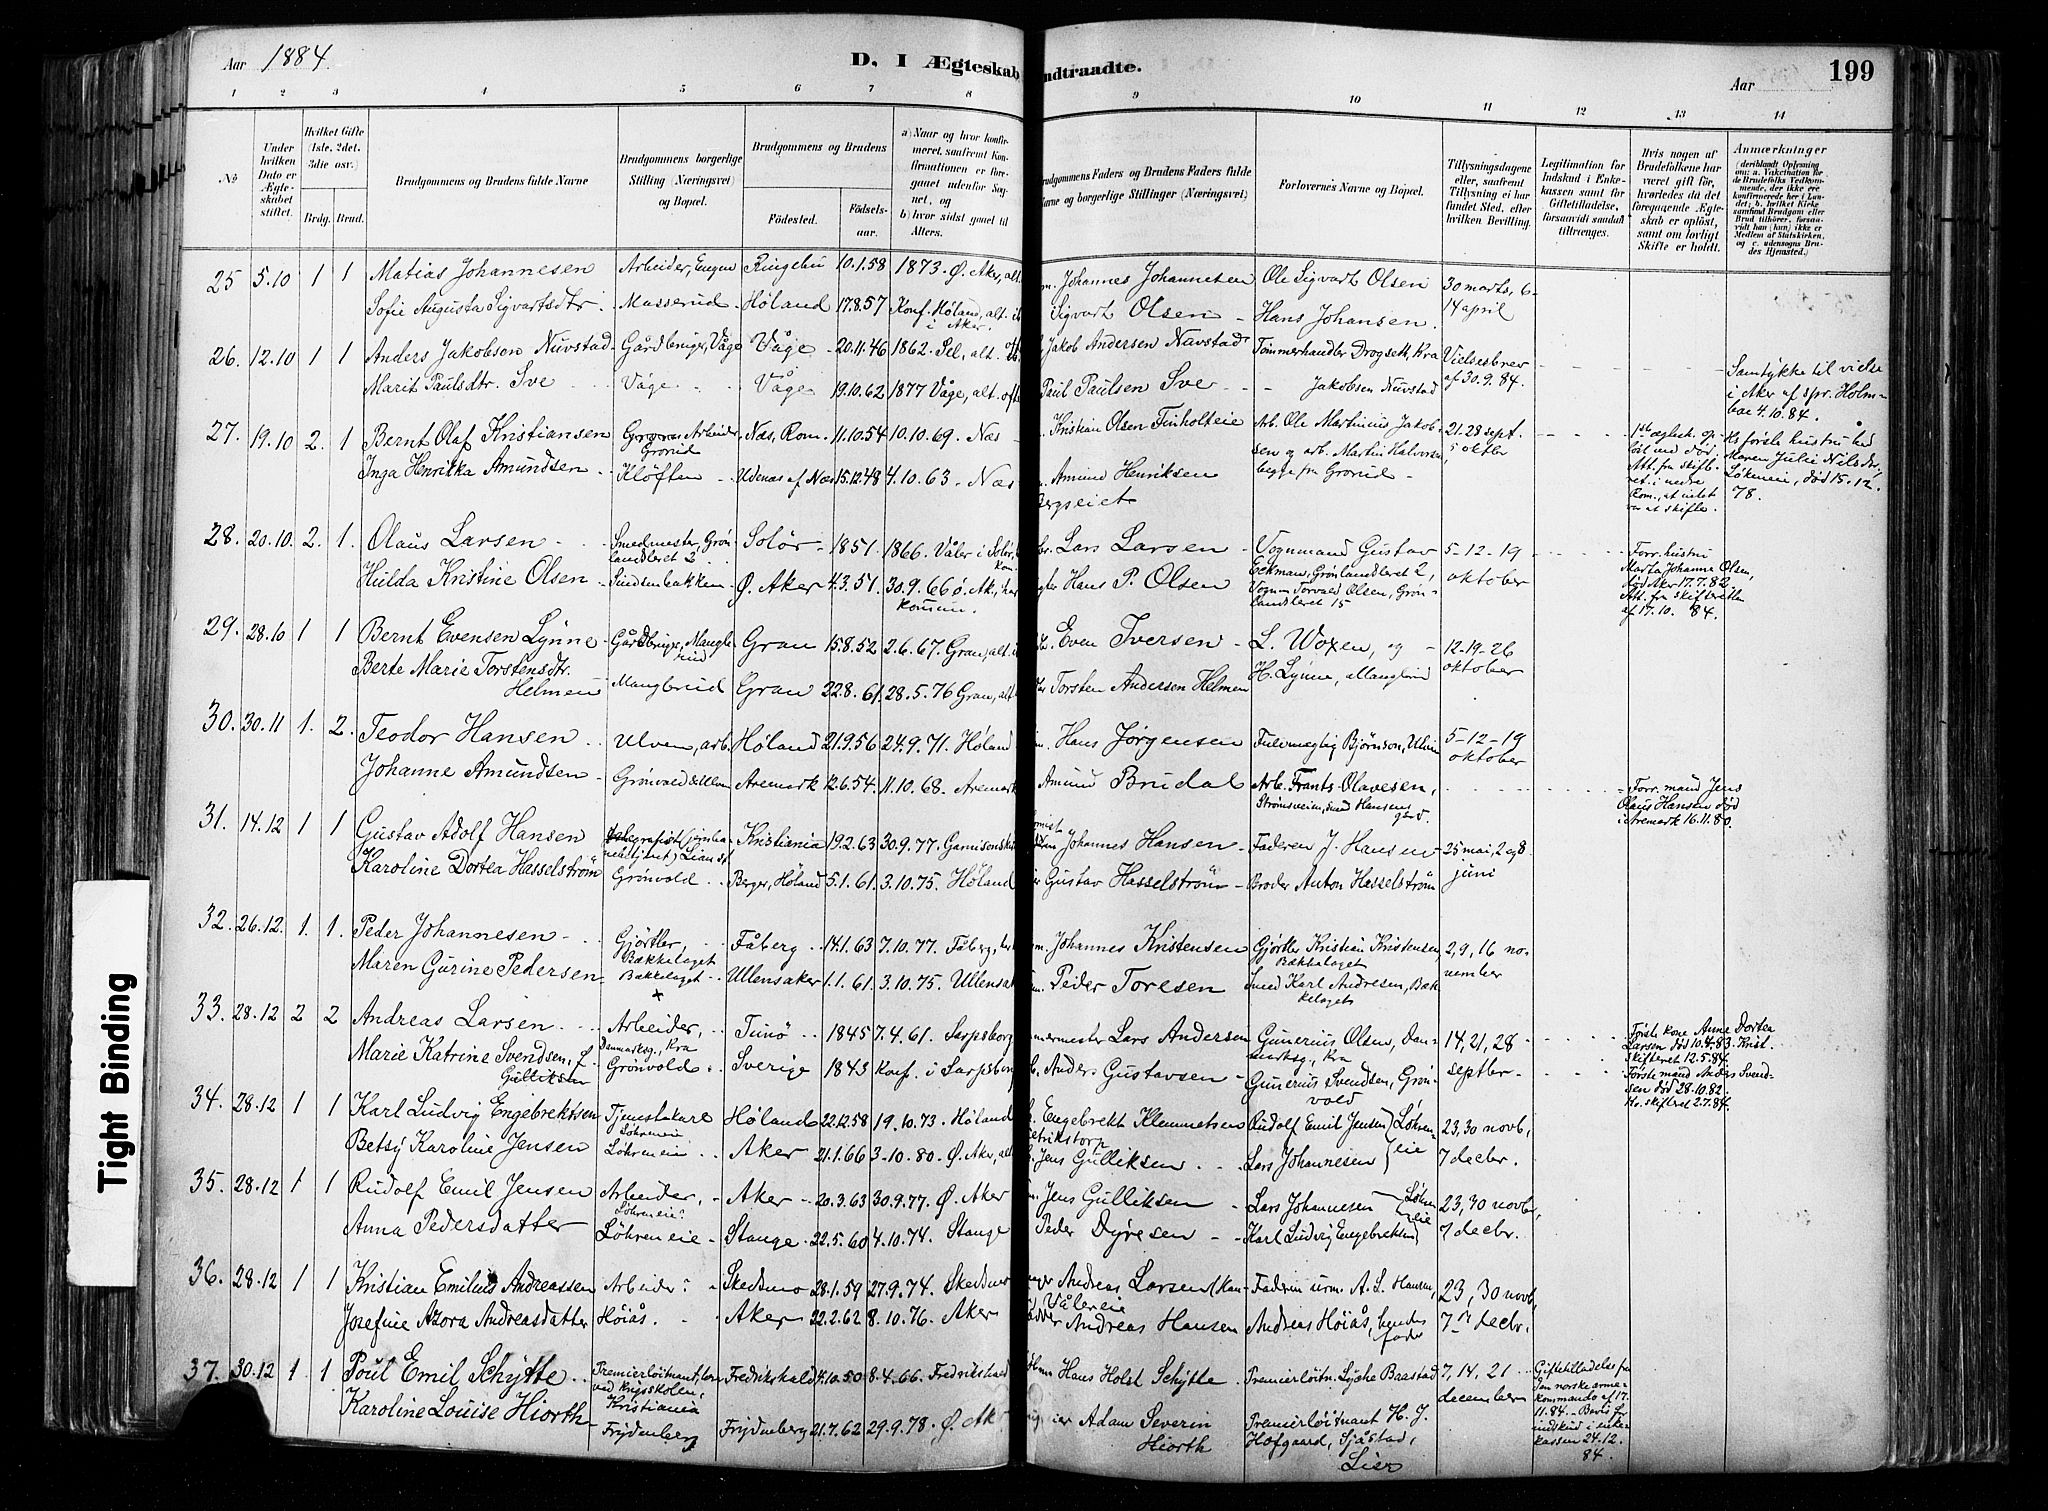 Aar 1884.
D. I Ægteskab indtraadte.
Aar
199
1 2 3 4 5 6 7 8 9 10 11 12 13 14
No
Under hvilken Dato er Ægteskabet stiftet.
Hvilket Gifte (1ste, 2det, 3die osv.)
Brdg. Brud.
Brudgommens og Brudens fulde Navne
Brudgommens borgerlige Stilling (Næringsvei) og Bopæl.
Brudgommens og Brudens
Fødested.
Fødselsaar.
a) Naar og hvor konfirmeret, saafremt Konfirmationen er foregaaet udenfor Sognet, og b) hvor sidst gaaet til Alters.
Brudgommens Faders og Brudens Faders fulde Navne og borgerlige Stillinger (Næringsvei)
Forlovernes Navne og Bopæl.
Tillysningsdagene eller, saafremt Tillysning ei har fundet Sted, efter hvilken Bevilling.
Legitimation for Indskud i Enkekassen samt for Giftetilladelse, forsaavidt saadan tiltrænges.
Hvis nogen af Brudefolkene har været gift før, hvorledes da det foregaaende Ægteskab er opløst, samt om lovligt Skifte er holdt.
Anmærkninger
(deriblandt Oplysning om: a. Vaccination for de Brudefolks Vedkommende, der ikke ere konfirmerede her i Landet; b. hvilket Kirkesamfund Brudgom eller Brud tilhører, forsaavidt han (hun) ikke er Medlem af Statskirken, og c. udensogns Brudes Hjemsted.)
25 5.10 1 1 Matias Johannesen Arbeider, Engen Ringebu 10.1.58 1873. Ø. Aker, alt. Johannes Johannesen Ole Sigvart Olsen 30 marts, 6-14 april
Sofie Augusta Sigvartsdtr. Masserud Høland 17.8.57 Konf. Høland, alt. i Aker. Sigvart Olsen Hans Johansen.
26. 12.10 1 1 Anders Jakobsen Nuvstad Gårdbruger, Våge Våge 20.11.46 1862. Sel, alt. Jakob Andersen Nuvstad Tømmerhandler Drogseth, Kra Vielsesbrev af 30.9.84. Samtykke til vielse i Aker af spr. Holmboe 4.10.84.
Marit Paulsdtr. Sve Våge Våge 19.10.62 1877 Våge, alt. ofte Paul Paulsen Sve Jakobsen Nuvstad
27. 19.10 2. 1 Bernt Olaf Kristiansen Arbeider Grorud Næs, Rom. 11.10.54 10.10.69. Næs Kristian Olsen Finholteie Arb. Ole Martinius Jakobsen og arb. Martin Halvorsen begge fra Grorud 21.28 sept. 5 oktbr 1ste ægtesk. opløst ved død. Att. fra skifteret. i nedre Rom., at intet var at skifte. Hs første hustru hed Maren Julie Nilsdtr. Løkeneie, død 15.12.78.
Inga Henrikka Amundsen Kløften Udenæs af Næs 15.12.48 4.10.63. Næs Amund Henriksen Bergseiet
28. 20.10. 2. 1. Olaus Larsen Smedmester, Grønlandsleret 2 Solør 1851. 1866. Våler i Solør, kom. Lars Larsen Vognmand Gustav Eckman, Grønlandsleret 2, 5-12-19 oktober Forr. hustru Marta Johanne Olsen, død Aker 17.7.82. Att. fra skifteretten af 17.10.84.
Hulda Kristine Olsen Sinsenbakken Ø. Aker 4.3.51. 30.9.66 Ø. Ak., har komun. Hans P. Olsen Vognm Torvald Olsen, Grønlandsleret 15
29. 28.10 1 1 Bernt Evensen Lynne Gårdbruger, Manglerud Gran 15.8.52 2.6.67. Gran, alt. Even Iversen L. Woxen, og H. Lynne, Manglerud 12-19-26 oktober
Berte Marie Torstensdtr. Helmen Manglerud Gran 22.8.61. 28.5.76 Gran, alt. Torsten Andersen Helmen
30. 30.11 1. 2. Teodor Hansen Ulven, arb. Høland 21.9.56 24.9.71. Høland Hans Jørgensen Fulvmægtig Bjørnson, Ulven 5-12-19 oktober
Johanne Amundsen Grønvold & Ulven Aremark 12.6.54. 11.10.68. Aremark Amund Brudal Arb. Frants Olavesen, Strømsveien, smed Hansens gård. Forr. mand Jens Olaus Hansen død i Aremark 16.11.80.
31. 14.12 1 1 Gustav Adolf Hansen telegrafist Kristiania 19.2.63 30.9.77. Garnisonsk. Johannes Hansen Faderen J. Hansen 25 mai, 2 og 8 juni
Karoline Dortea Hasselstrøm Grønvold Berger, Høland 5.1.61. 3.10.75. Høland Gustav Hasselstrøm Broder Anton Hasselstrøm
32. 26.12. 1. 1. Peder Johannesen Gjørtler, Bækkelaget Fåberg 14.1.63 7.10.77. Fåberg, Johannes Kristensen Gjørtler Kristian Kristensen, Bækkelaget 2, 9, 16 november
Maren Gurine Pedersen Bækkelaget Ullensaker 1.1.61. 3.10.75. Ullensak. Peder Toresen Smed Karl Andresen, Bækkelaget
33. 28.12 2 2 Andreas Larsen Arbeider, Danmarksg., Kra Tunø 1845 7.4.61. Sarpsborg Lars Andersen Gunerius Olsen, Danmarksg., Kra 14, 21, 28 septbr. Første kone Anne Dortea Larsen død 10.4.83. Krist. skifteret 12.5.84.
Marie Katrine Svendsen, f. Gulliksen Grønvold Sverige 1843 Konf. i Sarpsborg Anders Gustavsen Gunerius Svendsen, Grønvold Første mand Anders Svendsen død 28.10.82. Kr. skifteret 2.7.84.
34. 28.12 1 1 Karl Ludvig Engebrektsen Tjenestekare Løhreneie Høland 22.12.58 19.10.73. Høland Engebrekt Klemmetsen Rudolf Emil Jensen } Løhreneie 23, 30 novb, 7 decbr.
Betsy Karoline Jensen Løhreneie Aker 21.1.66 3-10.80. Ø. Aker, alt. Jens Gulliksen Lars Johannesen
35. 28.12 1 1 Rudolf Emil Jensen Arbeider, Løhreneie Aker 20.3.63 30.9.77. Ø. Aker Jens Gulliksen Lars Johannesen } Løhreneie 23, 30 novbr, 7 decbr.
Anna Pedersdatter Løhreneie Stange 22.5.60 4.10.74. Stange Peder Dyresen Karl Ludvig Engebrektsen
36. 28.12 1 1 Kristian Emilius Andreassen Arbeider Skedsmo 28.1.59 27.9.74. Skedsmo Andreas Larsen Vålereie Faderen urm. A. L. Hansen, 23, 30 novb, 7 decbr.
Josefine Azora Andreasdatter Høiås. Aker 22.2.62 8.10.76. Aker Andreas Hansen Andreas Høiås, hendes fader
37. 30.12 1 1 Poul Emil Schytte Premierløitnant, ved krigsskolen, Kristiania Fredrikshald 4.10.50 8.4.66. Fredrikshald Hans Holst Schytte Premierløitn. Lyche Baastad 7, 14, 21 december Giftetilladelse fra den norske armekommando af 17.11.84 - Bevis for indskud i enkekassen 24.12.84.
Karoline Louise Hiorth Frydenberg Frydenberg 21.7.62 29.9.78. Ø. Aker Adam Severin Hiorth Premierløitnant H. J. Hofgaard, Sjåstad, Lier
Tight Binding